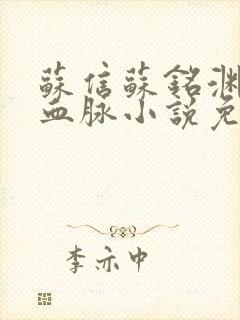 蘇信蘇銘淵
血脉小說免
李亦中